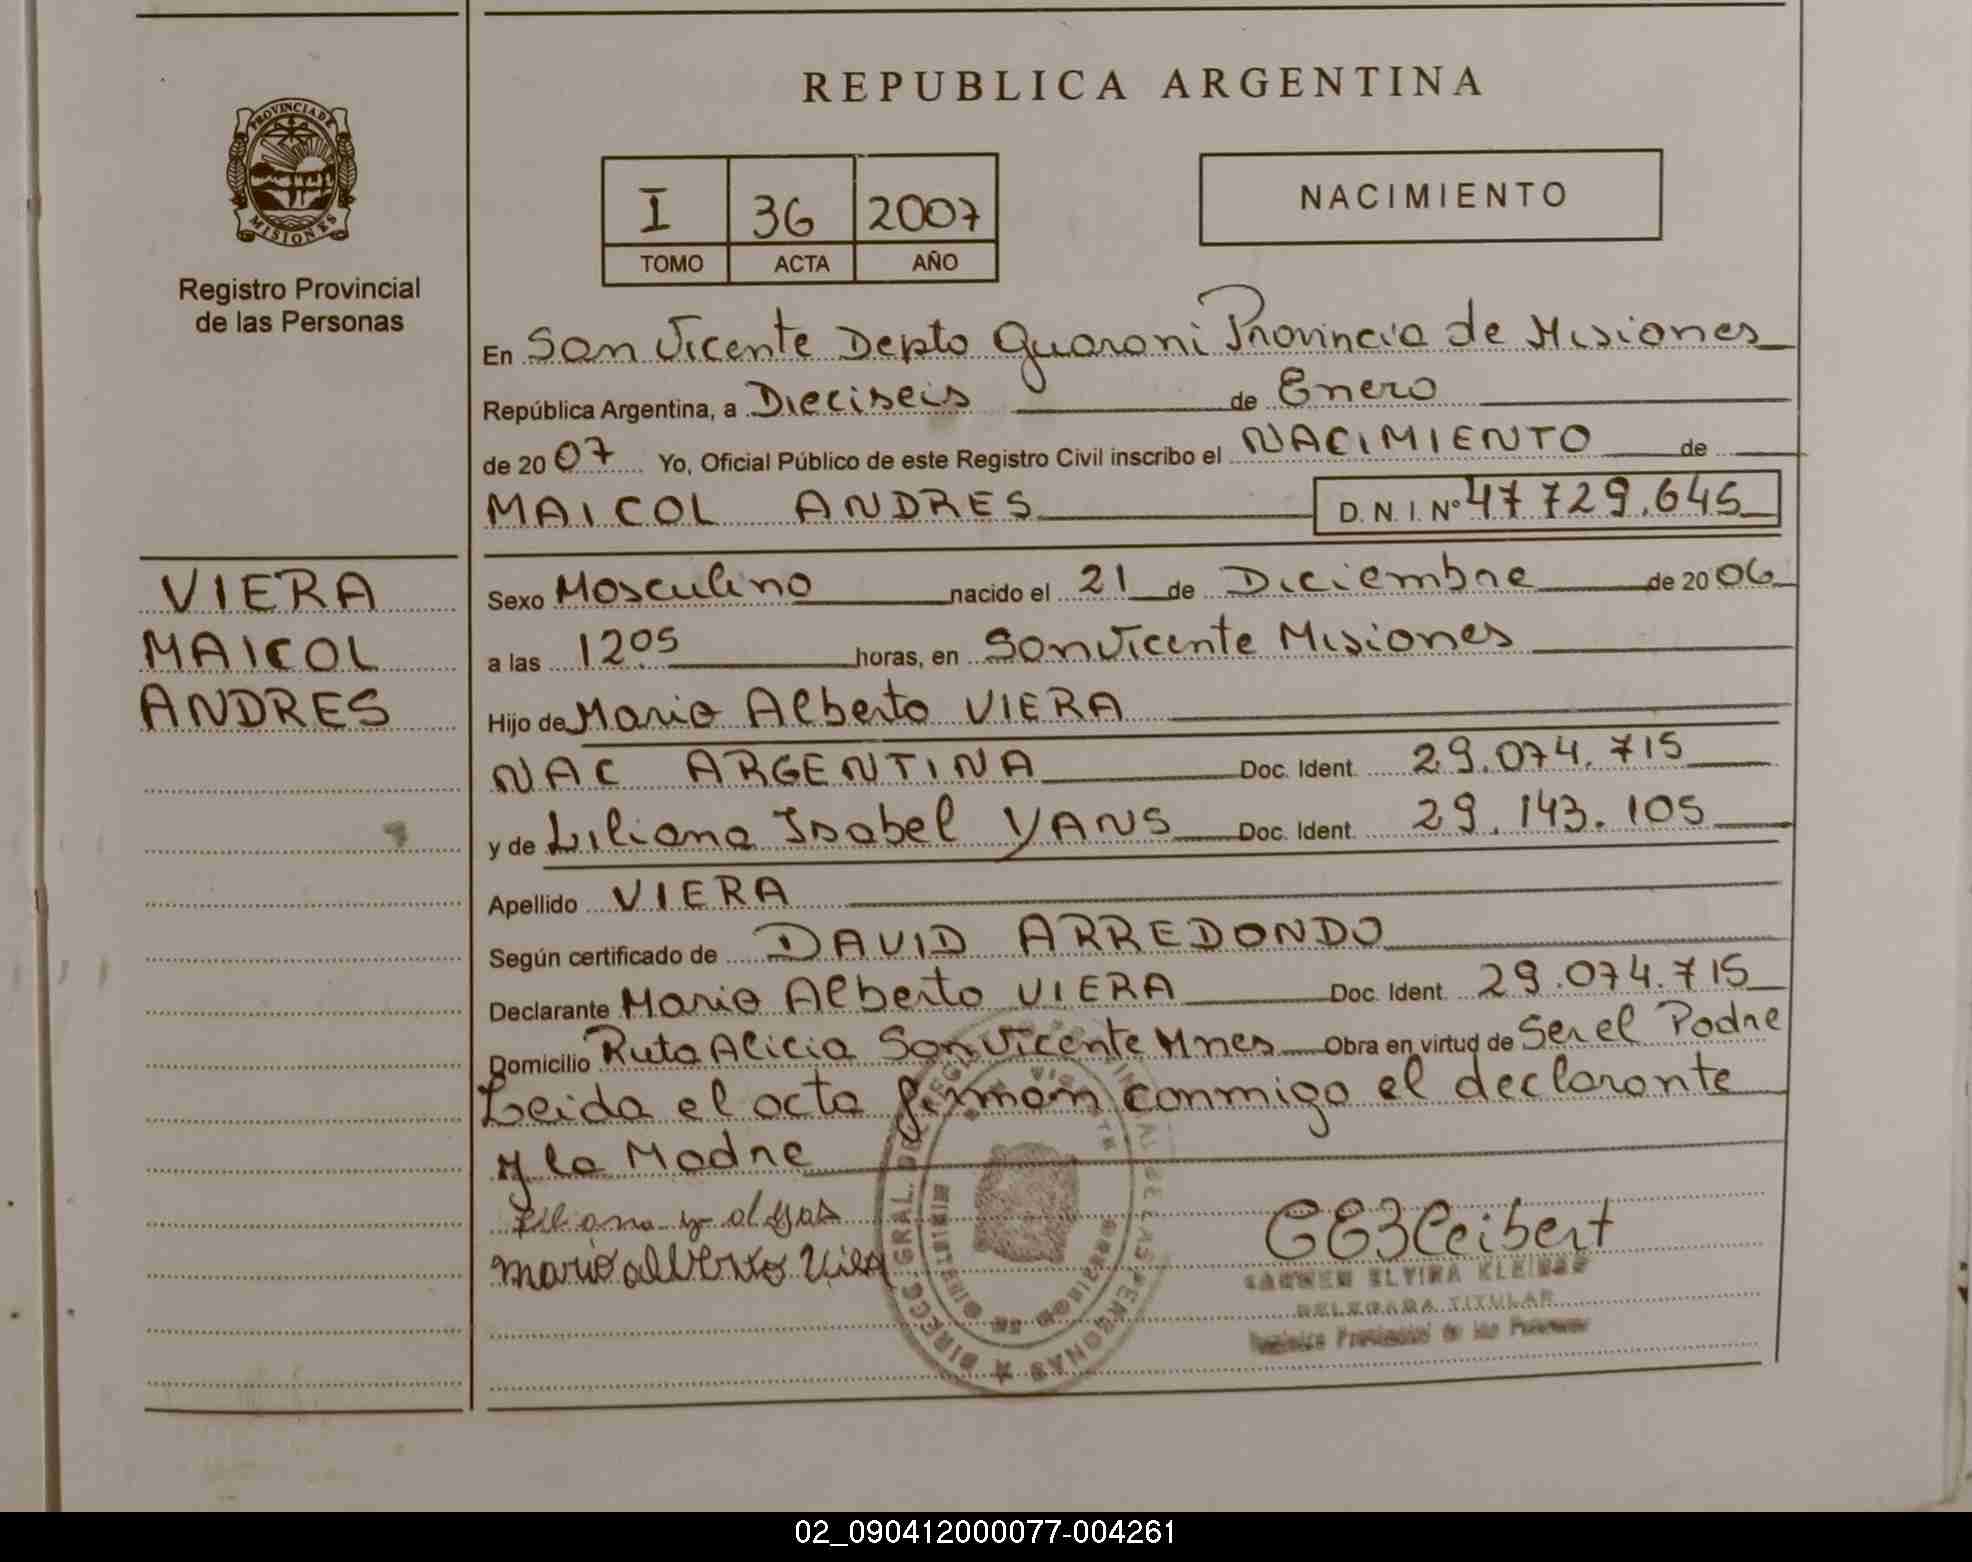 REPUBLICA ARGENTINA
PROVINCIA DE MISIONES
Registro Provincial
de las Personas
I 36 2007
TOMO ACTA AÑO
NACIMIENTO
En San Vicente Depto Guarani Provincia de Misiones
República Argentina, a Dieciseis de Enero
de 2007 Yo, Oficial Público de este Registro Civil inscribo el NACIMIENTO de
MAICOL ANDRES D.N.I. Nº 47 729.645
VIERA
MAICOL
ANDRES
Sexo Masculino nacido el 21 de Diciembre de 2006
a las 1205 horas, en San Vicente Misiones
Hijo de Mario Alberto VIERA
NAC ARGENTINA Doc. Ident. 29.074.715
y de Liliana Isabel YANS Doc. Ident. 29.143.105
Apellido VIERA
Según certificado de DAVID ARREDONDO
Declarante Mario Alberto VIERA Doc. Ident. 29.074.715
Domicilio Ruta Alicia San Vicente Mnes Obra en virtud de Ser el Padre
Leida el acta firman conmigo el declarante
y la Madre
mario alberto
CARMEN ELVIRA
DELEGADA TITULAR
Registro Provincial de las Personas
DIRECC. GRAL. DEL REGISTRO PROVINCIAL DE LAS PERSONAS
SAN VICENTE
02_090412000077-004261